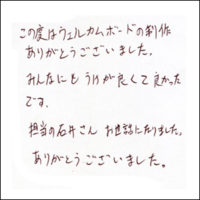 この度はウェルカムボードの制作
ありがとうございました。
みんなにも うけが良くて良かった
です。
担当の石井さん お世話になりました。
ありがとうございました。